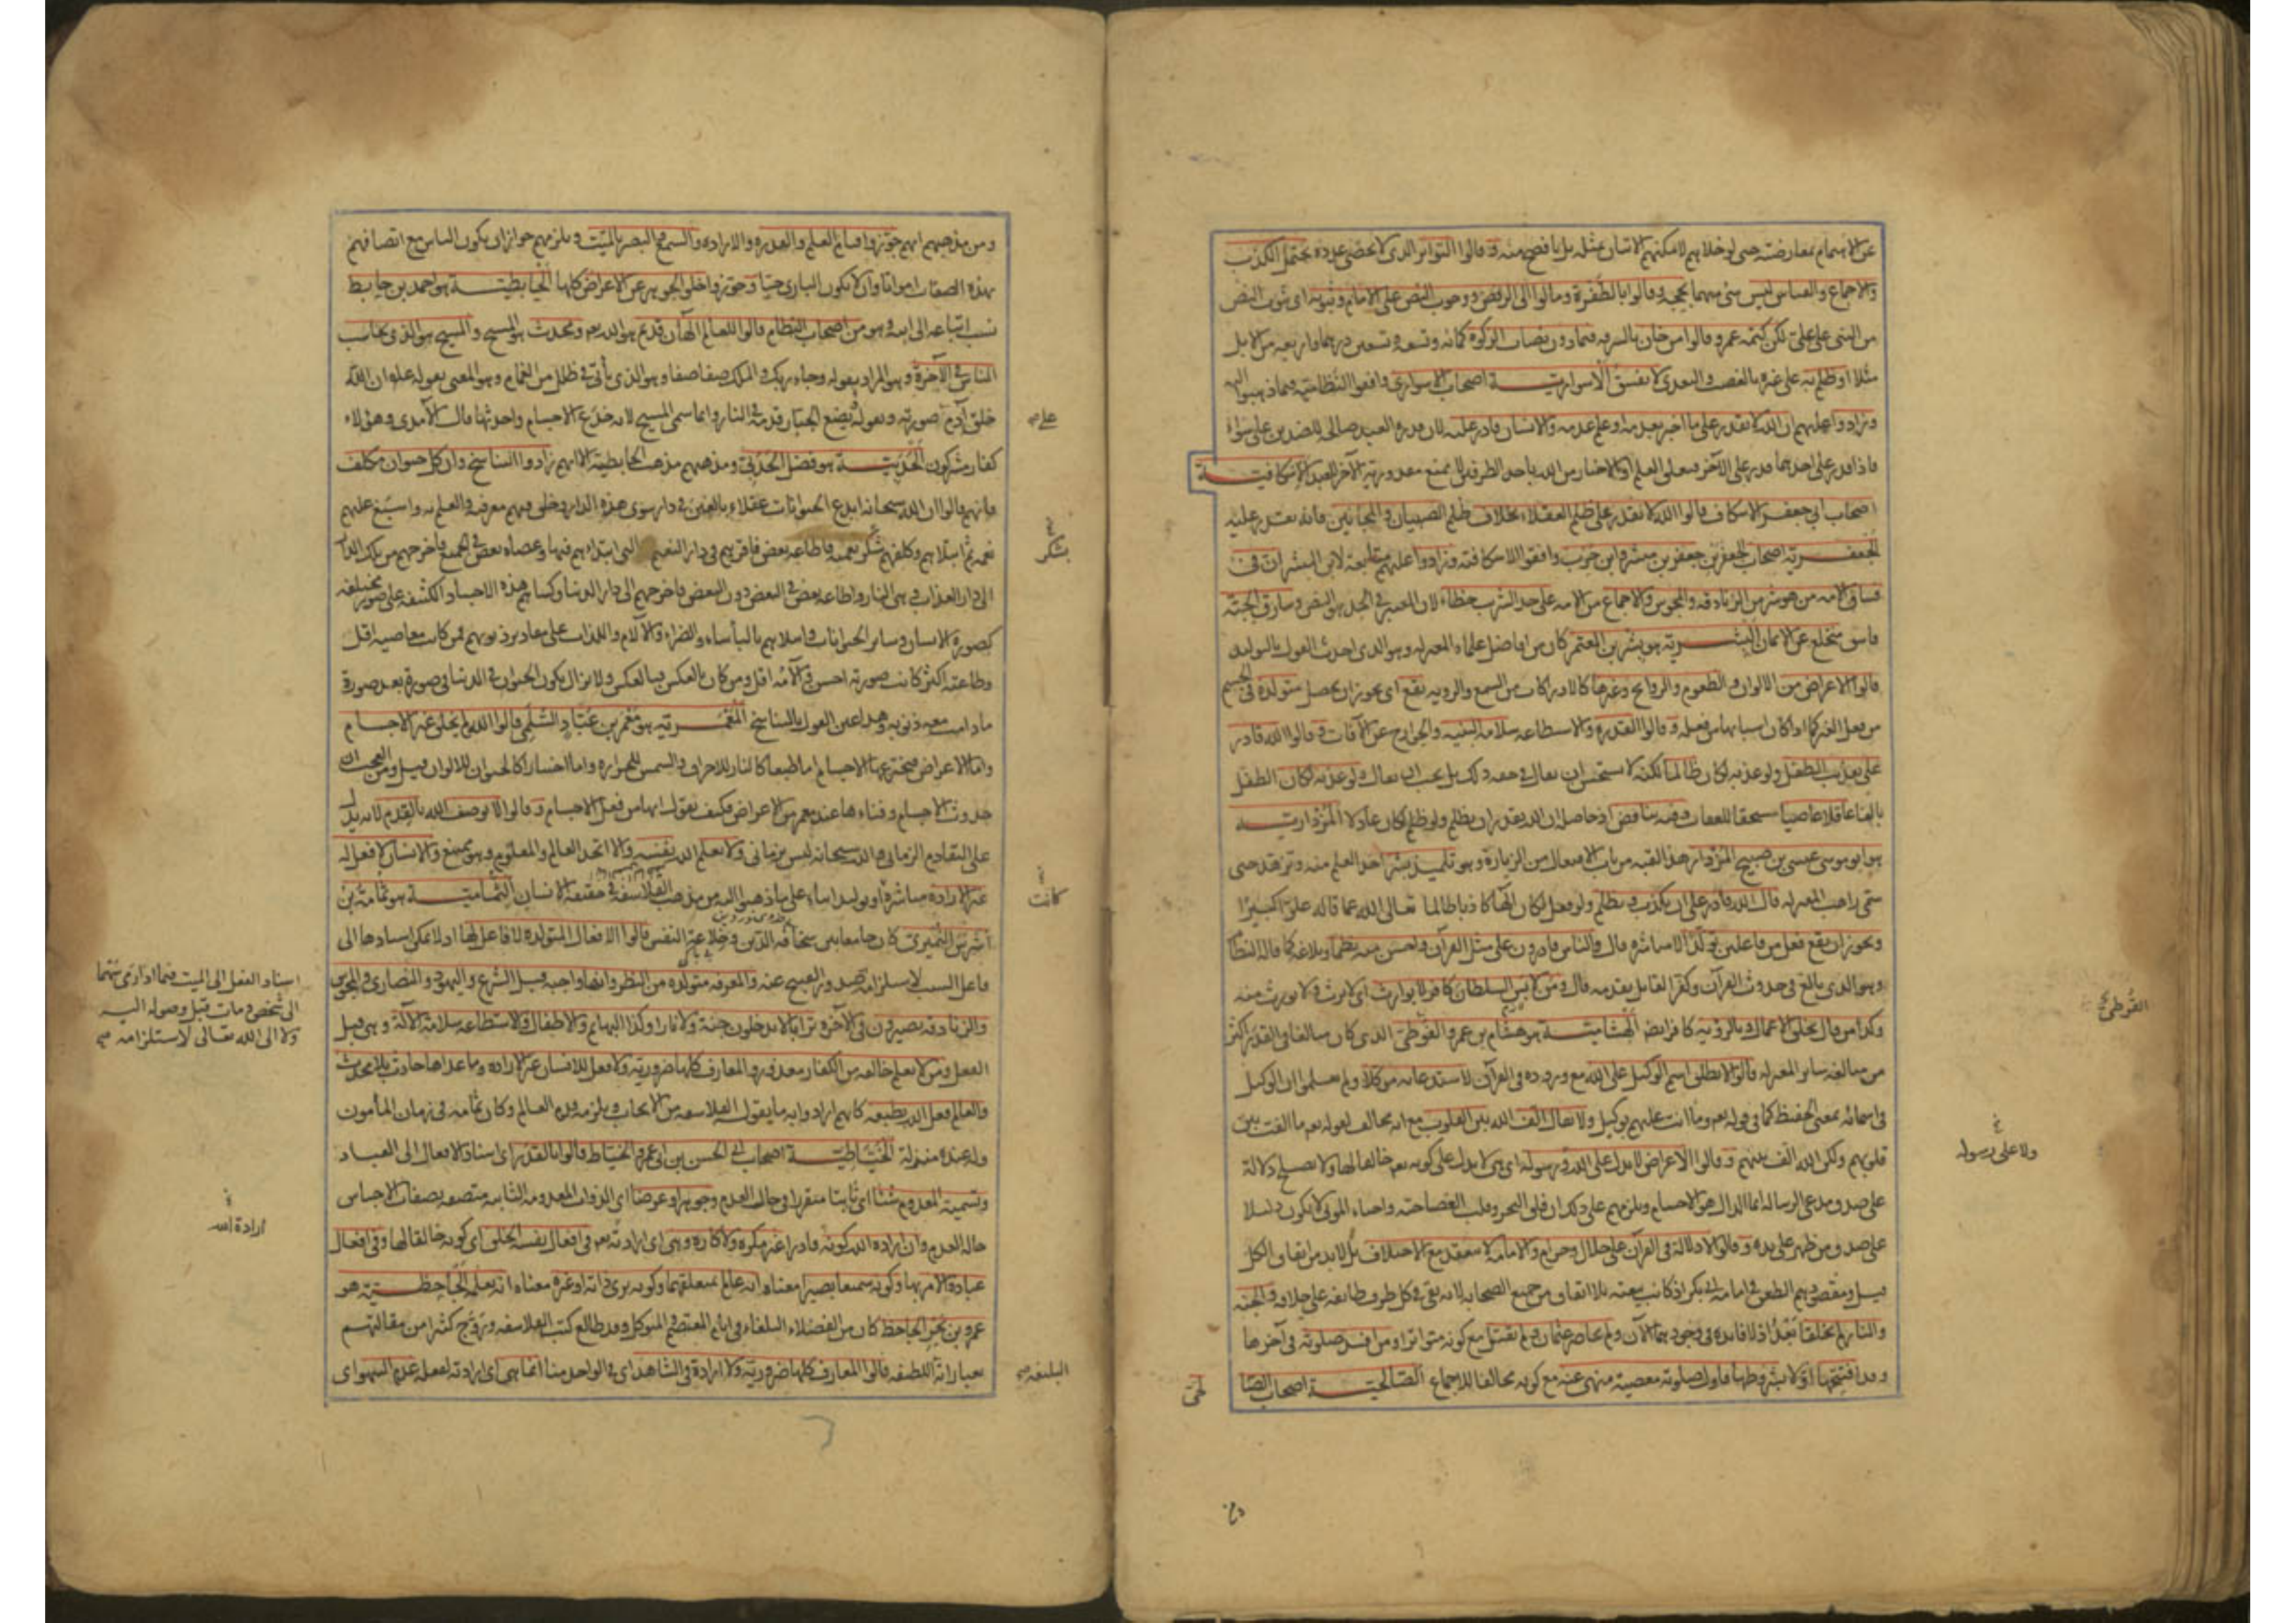 عن الاهتمام بمعارضته حتى لو خلاهم لامكنهم الاتيان بمثله بل بافصح منه وقالوا التواتر الذى لا يحصى عدده يحتمل الكذب
والاجماع والقياس ليس شئ منهما بحجة وقالوا بالطفرة ومالوا الى الرفض ووجوب النص على الامام وثبوته اى ثبوت النص
من النبى على على لكن كتمه عمر وقالوا من خان بالسرقة فيما دون نصاب الزكوة كمائة وتسعة وتسعين درهما واربعة من الابل
مثلا او ظلم به على غيره بالغصب والتعدى لا يفسق الاسوارية اصحاب الاسوارى وافقوا النظامية فيما ذهبوا اليه
وزادوا عليهم ان الله لا يقدر على ما اخبر بعدمه او علم عدمه والانسان قادر عليه لان قدرة العبد صالحة للضدين على سواء
فاذا قدر على احدهما قدر على الآخر فتعلق العلم او الاخبار من الله باحد الطرفين لا يمنع مقدورية الآخر للعبد الاسكافية
اصحاب ابى جعفر الاسكاف قالوا الله لا يقدر على ظلم العقلاء بخلاف ظلم الصبيان والمجانين فانه يقدر عليه
الجعفرية اصحاب الجعفرين جعفر بن مبشر وابن حرب وافقوا الاسكافية وزادوا عليهم متابعة لابن المبشر ان فى
فساق الامة من هو شر من الزنادقة والمجوس والاجماع من الامة على حد الشرب خطاء لان المعتبر فى الحد هو النص وسارق الحبة
فاسق منخلع عن الايمان البشرية هو بشر بن المعتمر كان من افاضل علماء المعتزلة وهو الذى احدث القول بالتوليد
قالوا الاعراض من الالوان والطعوم والروائح وغيرها كالادراكات من السمع والرؤية تقع اى يجوز ان يحصل متولدة فى الجسم
من فعل الغير كما اذا كان اسبابها من فعله وقالوا القدرة والاستطاعة سلامة البنية والجوارح عن الآفات وقالوا الله قادر
على تعذيب الطفل ولو عذبه لكان ظالما لكنه لا يستحسن ان يقال فى حقه ذلك بل يجب ان يقال ولو عذبه لكان الطفل
بالغا عاقلا عاصيا مستحقا للعقاب وفيه تناقض اذ حاصله ان الله يقدر ان يظلم ولو ظلم لكان عادلا المزدارية
هو ابو موسى عيسى بن صبيح المزدار هذا لقبه من باب الافتعال من الزيارة وهو تلميذ بشر اخذ العلم منه وتزهد حتى
سمى راهب المعتزلة قال الله قادر على ان يكذب ويظلم ولو فعل لكان الها كاذبا ظالما تعالى الله عما قاله علوا كبيرا
ويجوز ان يقع فعل من فاعلين تولدا لا مباشرة قال والناس قادرون على مثل القرآن واحسن منه نظما وبلاغة كما قاله النظام
وهو الذى بالغ فى حدوث القرآن وكفر القائل بقدمه قال ومن لابس السلطان كافر لا يوارث اى لا يرث ولا يورث منه
وكذا من قال بخلق الاعمال وبالرؤية كافر ايضا الهشامية هو هشام بن عمرو الفوطى الذى كان مبالغا فى القدر اكثر
من مبالغة سائر المعتزلة قالوا لا يطلق اسم الوكيل على الله مع وروده فى القرآن لاستدعائه موكلا ولم يعلموا ان الوكيل
فى اسمائه بمعنى الحفيظ كما فى قوله تعم وما انت عليهم بوكيل ولا يقال الف الله بين القلوب مع انه مخالف لقوله تعم ما الفت بين
قلوبهم ولكن الله الف بينهم وقالوا الاعراض لا يدل على الله ورسوله اى هى لا يدل على كونه تعم خالقا لها ولا يصلح دلالة
على صدق مدعى الرسالة انما الدال هو الاجسام ويلزمهم على ذلك ان فلق البحر وقلب العصا حية واحياء الموتى لا يكون دليلا
على صدق من ظهر على يده وقالوا لا دلالة فى القرآن على حلال وحرام والامامة لا ينعقد مع الاختلاف بل لا بد من اتفاق الكل
قيل ومقصودهم الطعن فى امامة ابى بكر اذ كانت بيعته بلا اتفاق من جميع الصحابة لانه بقى فى كل طرف طائفة على خلافه والجنة
والنار لم يخلقا بعد اذ لا فائدة فى وجودهما الآن ولم يحاصر عثمان ولم يقتل مع كونه متواترا ومن افسد صلوته فى آخرها
وقد افتتحها اولا بشروطها فاول صلوته معصية منهى عنه مع كونه مخالفا للاجماع الصالحية اصحاب الصا
لحى
القرطى
ولا على رسوله
ومن مذهبهم انهم جوزوا قيام العلم والقدرة والارادة والسمع والبصر بالميت ويلزمهم جواز ان يكون الناس مع اتصافهم
بهذه الصفات امواتا وان لا يكون البارى حيا وجوزوا خلو الجوهر عن الاعراض كلها الحابطية هو احمد بن حابط
نسب اتباعه الى ابيه وهو من اصحاب النظام قالوا للعالم الهان قديم هو الله تعم ومحدث هو المسيح والمسيح هو الذى يحاسب
الناس فى الآخرة وهو المراد بقوله وجاء ربك والملك صفا صفا وهو الذى يأتى فى ظلل من الغمام وهو المعنى بقوله عم ان الله
خلق آدم صورته وبقوله يضع الجبار قدمه فى النار وانما سمى المسيح لانه ذرع الاجسام واحدثها قال الآمدى وهؤلاء
على
كفار مشركون الحدثية هو فضل الحدثى ومذهبهم مذهب الحابطية الا انهم زادوا التناسخ وان كل حيوان مكلف
فانهم قالوا ان الله سبحانه ابدع الحيوانات عقلاء بالغين فى دار سوى هذه الدار وخلق فيهم معرفته والعلم به واسبغ عليهم
نعمه ثم ابتلاهم وكلفهم شكر نعمته فاطاعه بعض فاقرهم فى دار النعيم التى ابتداهم فيها وعصاه بعض فى الجميع فاخرجهم من تلك الدار
بشكر
الى دار العذاب وهى النار واطاعه بعض فى البعض دون البعض فاخرجهم الى دار الدنيا وكساهم هذه الاجساد الكثيفة على صور مختلفة
كصورة الانسان وسائر الحيوانات وابتلاهم بالبأساء والضراء والآلام واللذات على مقادير ذنوبهم فمن كانت معاصيه اقل
وطاعته اكثر كانت صورته احسن وآلامه اقل ومن كان بالعكس فبالعكس ولا يزال يكون الحيوان فى الدنيا فى صورة بعد صورة
ما دامت معه ذنوبه وهذا عين القول بالتناسخ المعمرية هو معمر بن عباد السلمى قالوا الله لم يخلق غير الاجسام
واما الاعراض فيخترعها الاجسام اما طبعا كالنار للاحراق والشمس للحرارة واما اختيارا كالحيوان للالوان قيل ومن العجب ان
حدوث الاجسام وفناءها عند معمر من الاعراض فكيف يقول انها من فعل الاجسام وقالوا لا يوصف الله بالقدم لانه يدل
على التقادم الزمانى والله سبحانه ليس بزمانى ولا يعلم الله نفسه والا اتحد العالم والمعلوم وهو ممتنع والانسان لا فعل له
غير الارادة مباشرة او توليدا بناء على ما ذهبوا اليه من مذهب الفلاسفة فى حقيقة الانسان الثمامية هو ثمامة بن
كانت
اشرس النميرى كان جامعا بين سخافة الدين وخلاعة النفس قالوا الافعال المتولدة لا فاعل لها اذ لا يمكن اسنادها الى
فاعل السبب لاستلزامه صدور القبيح عنه والمعرفة متولدة من النظر وانها واجبة قبل الشرع واليهود والنصارى والمجوس
اسناد الفعل الى الميت فيما اذا رمى سهما
الى شخص ومات قبل وصوله اليه
ولا الى الله تعالى لاستلزامه
والزنادقة يصيرون فى الآخرة ترابا لا يدخلون جنة ولا نارا وكذا البهائم والاطفال والاستطاعة سلامة الآلة وهى قبل
الفعل ومن لا يعلم خالقه من الكفار معذور والمعارف كلها ضرورية ولا فعل للانسان غير الارادة وما عداها حادث بلا محدث
والعالم فعل الله بطبعه كانهم ارادوا به ما يقوله الفلاسفة من الايجاب ويلزمه قدم العالم وكان ثمامة فى زمان المأمون
وله عنده منزلة الخياطية اصحاب ابى الحسن بن ابى عمرو الخياط قالوا بالقدر اى اسناد الافعال الى العباد
وتسمية المعدوم شيئا اى ثابتا متقررا فى حال العدم وجوهرا وعرضا اى الذوات المعدومة الثابتة متصفة بصفات الاجناس
حالة العدم وان ارادة الله كونه قادرا غير مكره ولا كاره وهى اى ارادته تعم فى افعال نفسه الخلق اى كونه خالقا لها وفى افعال
ارادة الله
عباده الامر بها وكونه سميعا بصيرا معناه انه عالم بمتعلقهما وكونه يرى ذاته او غيره معناه انه يعلمه الجاحظية هو
عمرو بن بحر الجاحظ كان من الفضلاء البلغاء فى ايام المعتصم والمتوكل وقد طالع كتب الفلاسفة وروج كثيرا من مقالتهم
بعباراته اللطيفة قالوا المعارف كلها ضرورية ولا ارادة فى الشاهد اى فى الواحد منا انما هى اى ارادته لفعله عدم السهو اى
البليغة